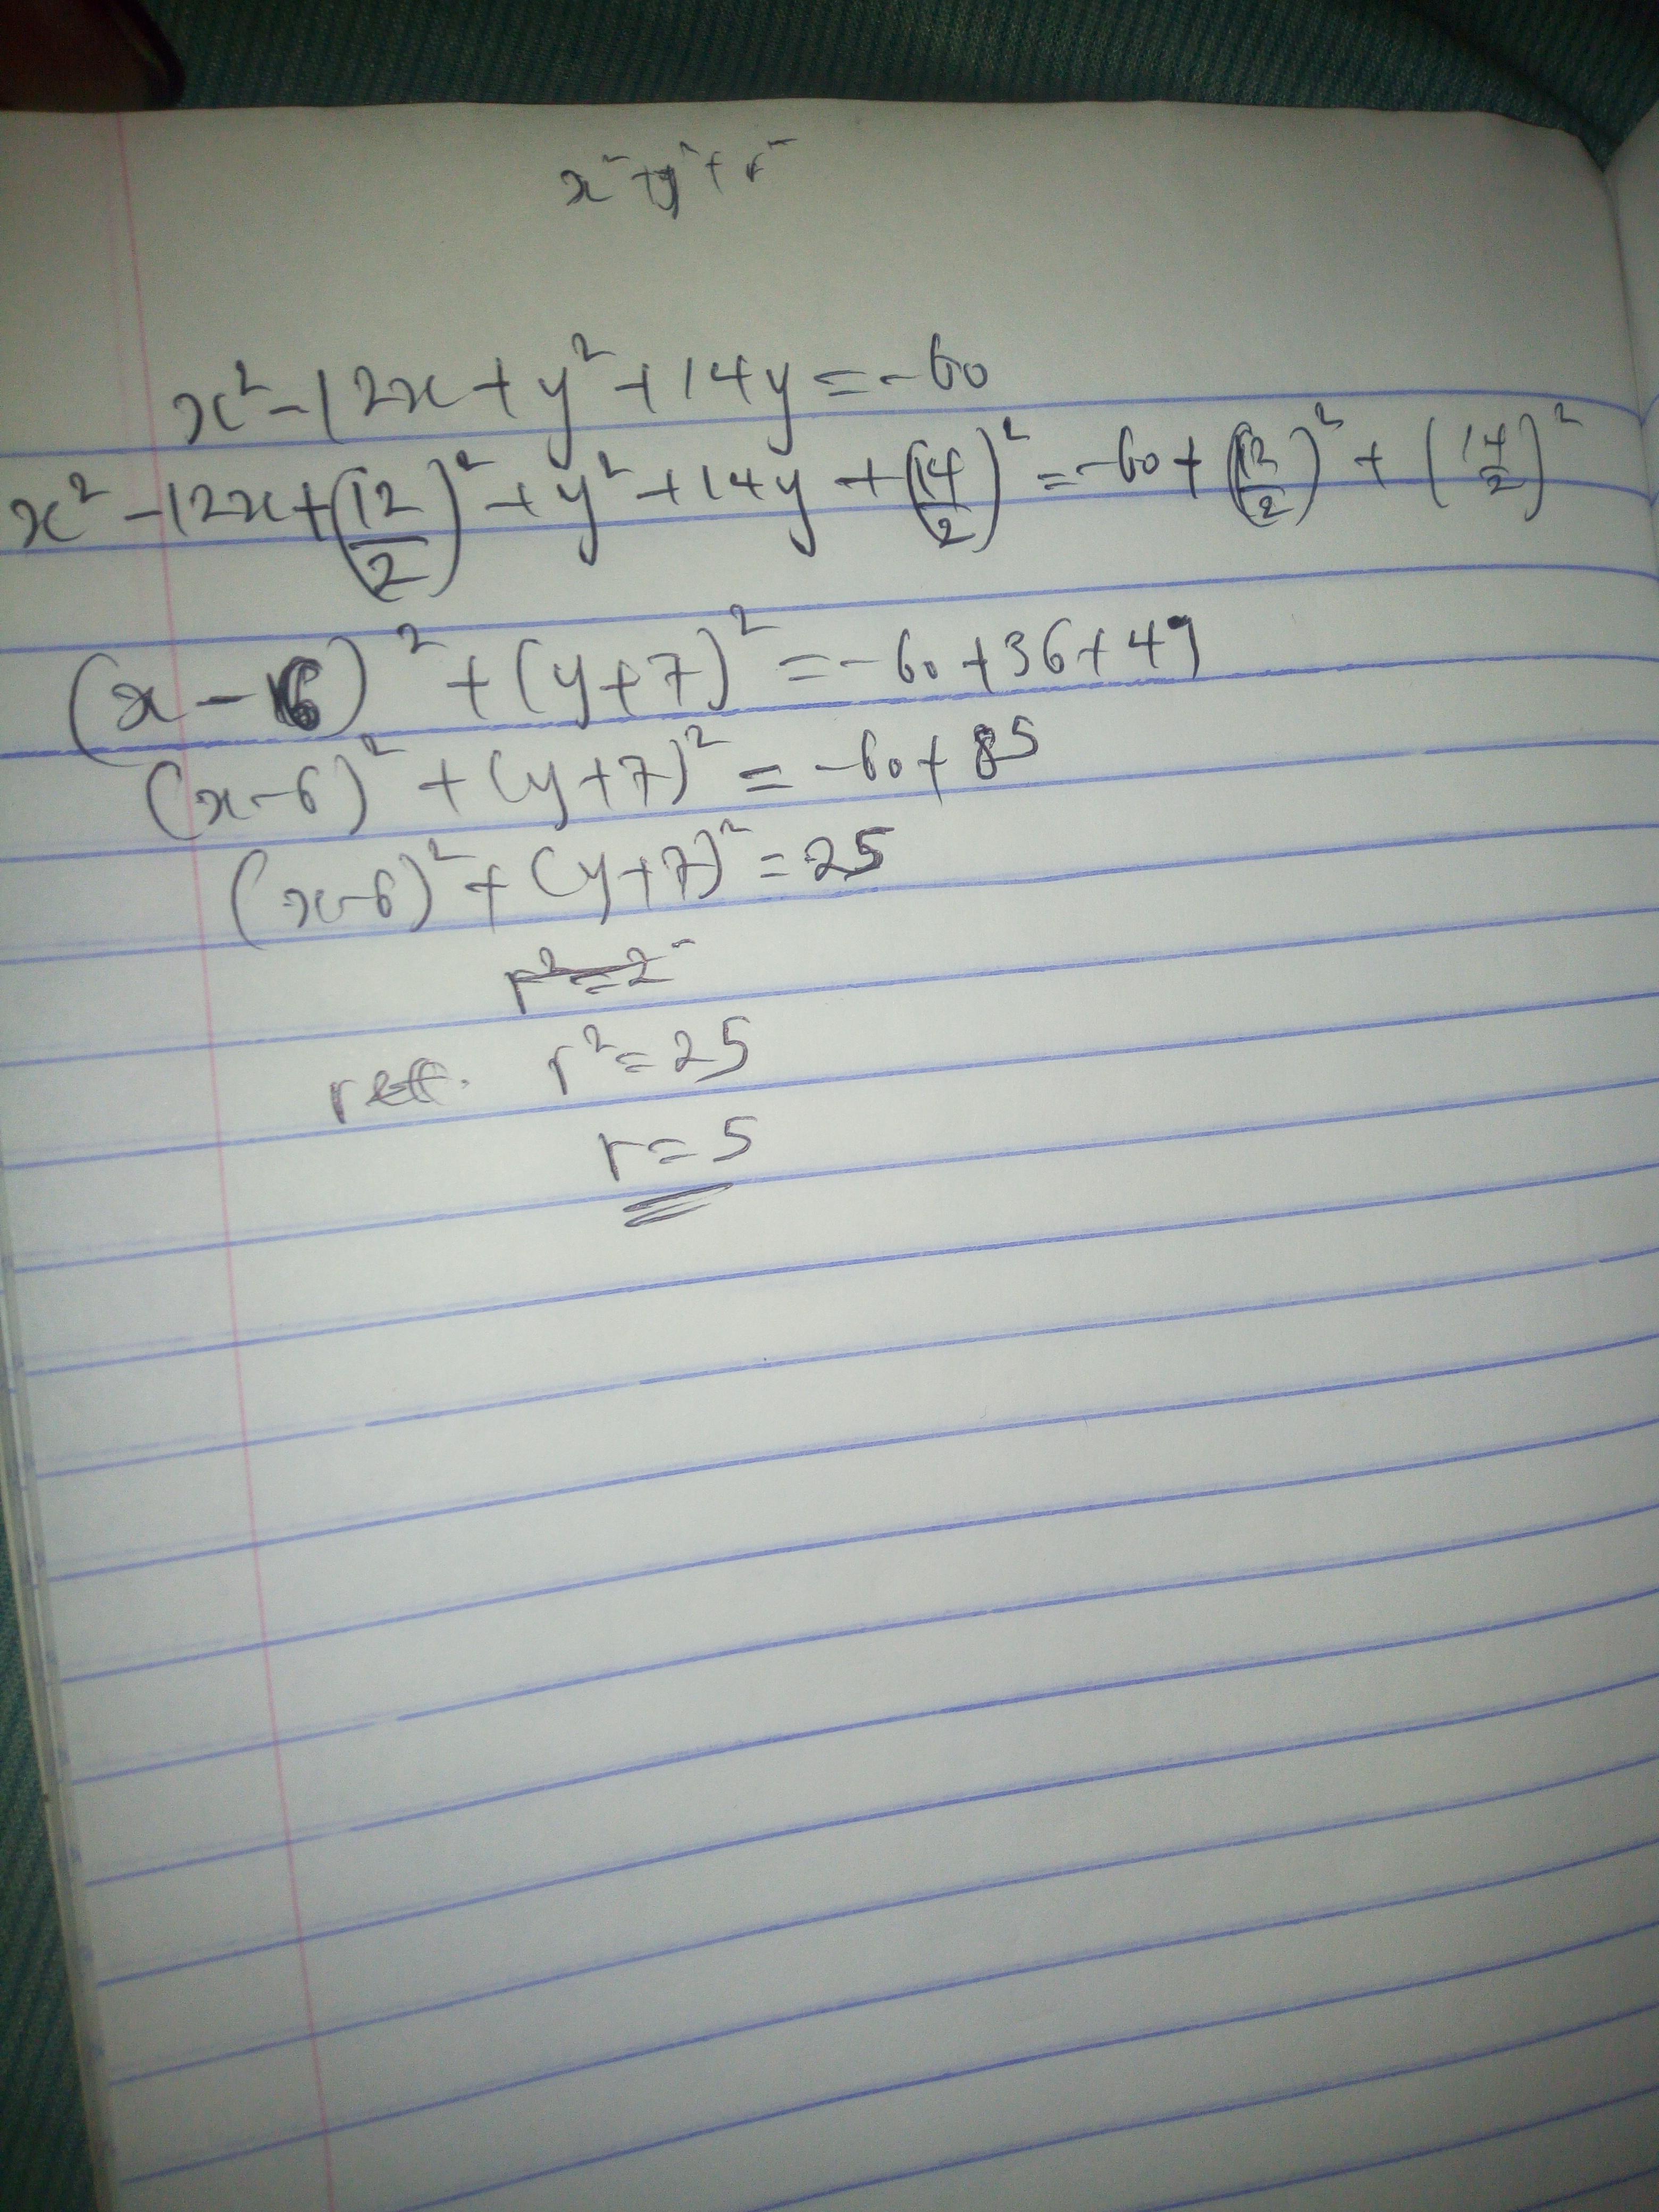 x² + y² + r²
x² - 12x + y² + 14y = -60
x² - 12x + (12/2)² + y² + 14y + (14/2)² = -60 + (12/2)² + (14/2)²
(x - 6)² + (y + 7)² = -60 + 36 + 49
(x - 6)² + (y + 7)² = -60 + 85
(x - 6)² + (y + 7)² = 25
r² = 2
r² = 25
r = 5